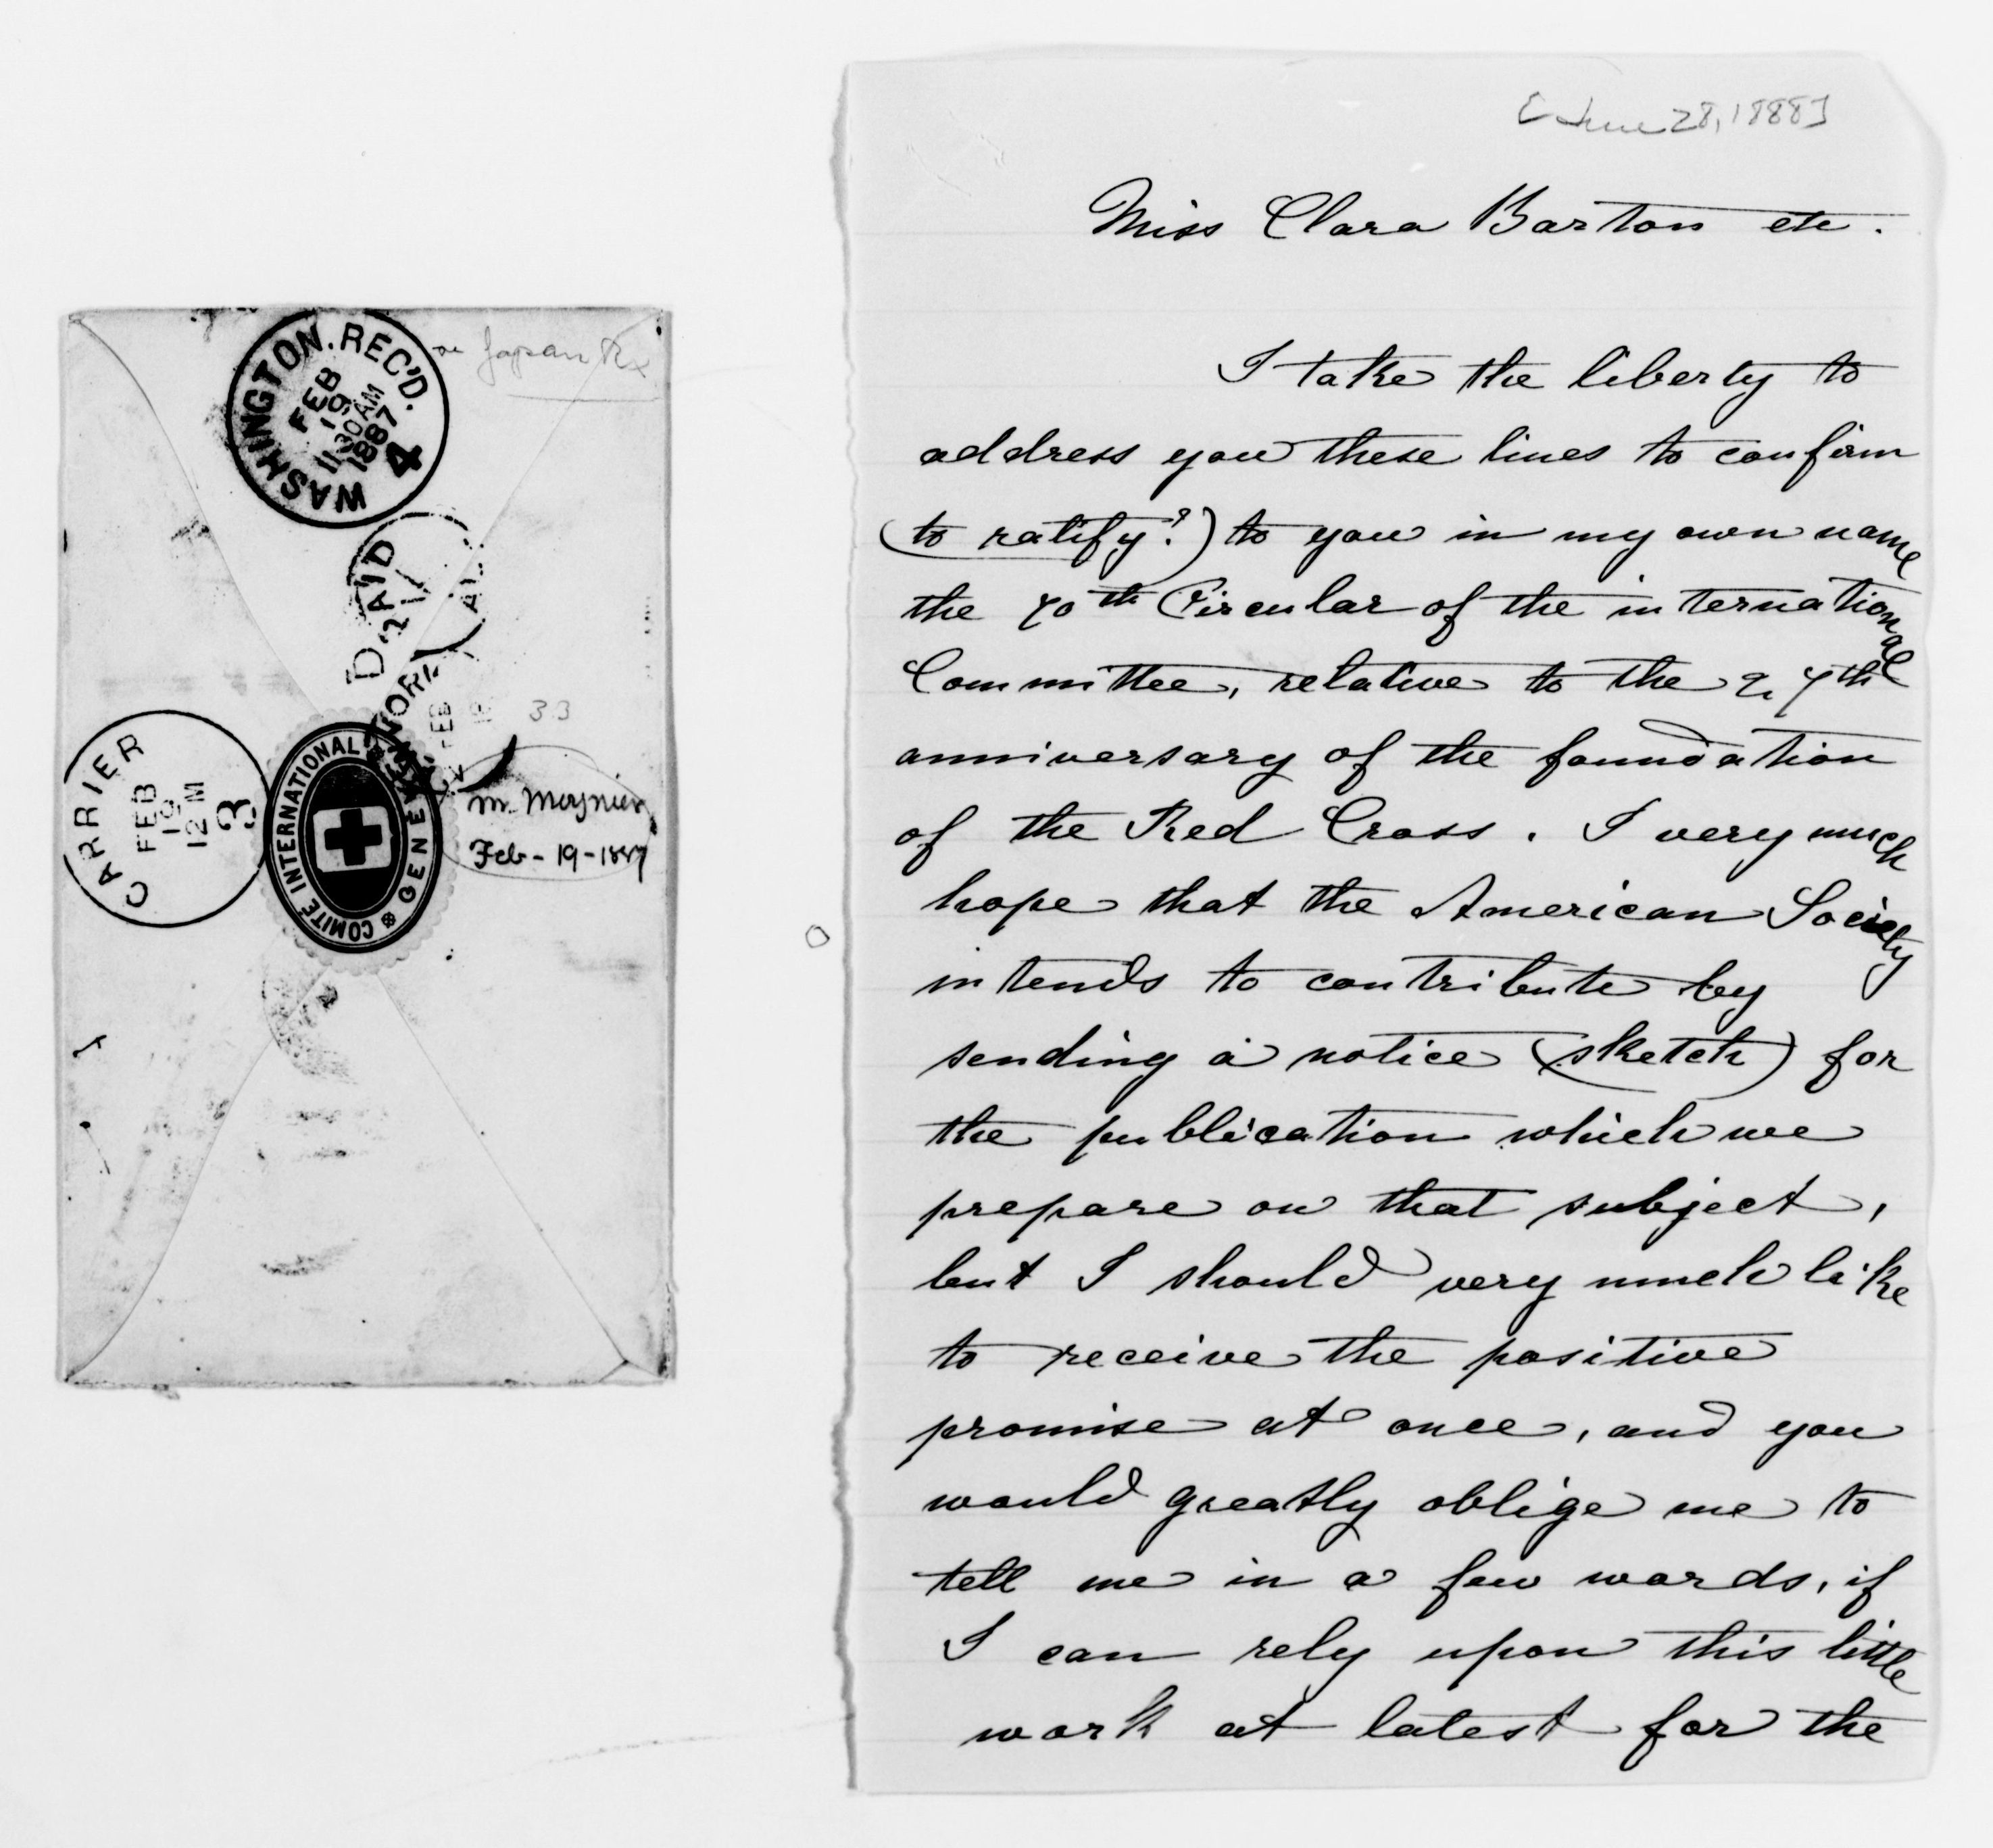 WASHINGTON. REC'D.
FEB
19
1130AM
1887
4
Japan
PAID
ALL
NEW YORK
FEB
33
CARRIER
FEB
19
12M
3
COMITÉ INTERNATIONAL
GENÈVE
M. Moynier
Feb - 19 - 1887
[June 28, 1888]
Miss Clara Barton etc.
I take the liberty to
address you these lines to confirm
(to ratify?) to you in my own name
the 70th Circular of the international
Committee, relative to the 27th
anniversary of the foundation
of the Red Cross. I very much
hope that the American Society
intends to contribute by
sending a notice (sketch) for
the publication which we
prepare on that subject,
but I should very much like
to receive the positive
promise at once, and you
would greatly oblige me to
tell me in a few words, if
I can rely upon this little
work at latest for the